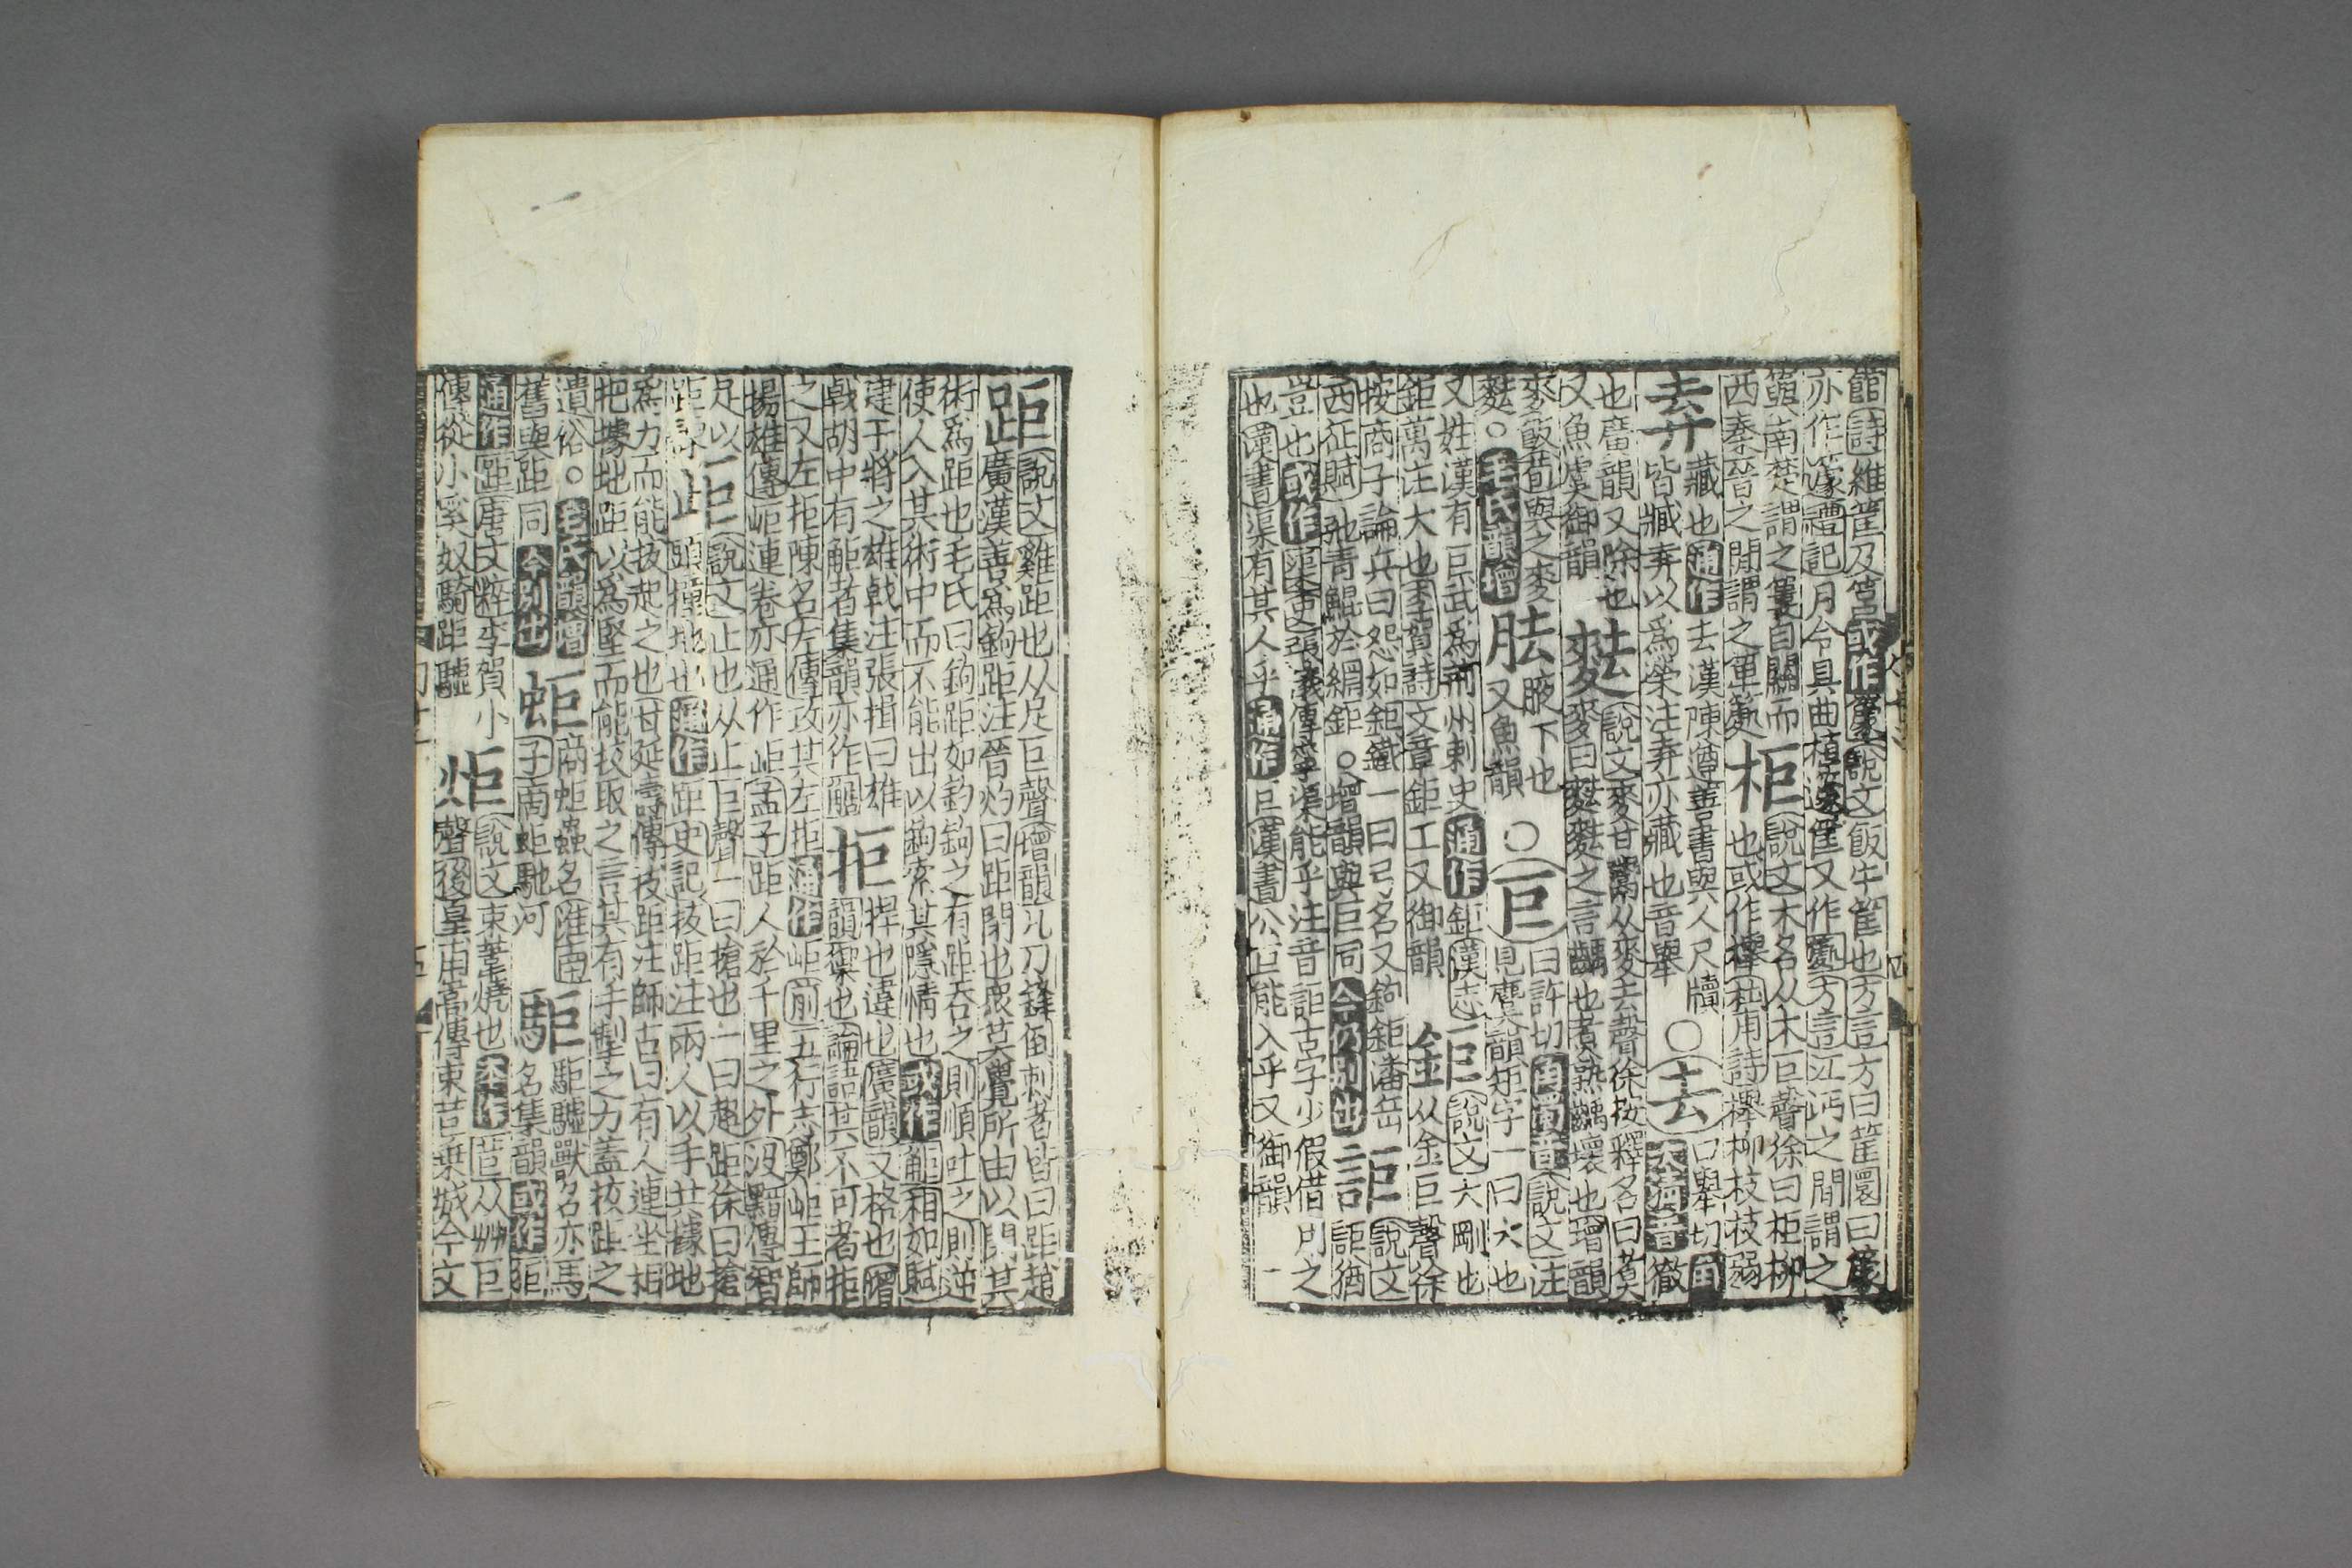 筥詩維筐及筥或作籧說文飯牛筐也方言方曰筐圜曰籧
亦作籧禮記月令具曲植籧筐又作方言江沔之間謂之
籅南楚謂之簍自關而
西秦晉之間謂之箄
柜
說文木名从木巨聲徐曰柜柳
也或作櫸杜甫詩櫸柳枝枝弱
弆
藏也通作去漢陳遵善書與人尺牘
皆臧弆以爲榮注弆亦藏也音舉
○去
口舉切角
次清音徹
也廣韻又除也
又魚虞御韻
麮
說文麥甘鬻从麥去聲徐按釋名曰煑
麥曰麮麮之言齲也煑熟齲壞也增韻
麥飯荀與之麥
麮○毛氏韻增
胠
腋下也
又魚韻
○巨
臼許切角濁音說文注
見麌韻矩字一曰大也
又姓漢有巨武爲荊州刺史通作鉅漢志
鉅萬注大也李賀詩文章鉅工又御韻
鉅
說文大剛也
从金巨聲徐
按商子論兵曰怨如鉅鐵一曰弓名又鉤鉅潘岳
西征賦弛青鯤於網鉅○增韻與巨同今仍別出
詎
說文
詎猶
豈也或作渠史張儀傳寧渠能乎注音詎古字少假借用之
也漢書渠有其人乎通作巨漢書公巨能入乎又御韻
距
說文雞距也从足巨聲增韻凡刀鋒倒刺者皆曰距趙
廣漢善爲鉤距注晉灼曰距閉也衆莫覺所由以閉其
術爲距也毛氏曰鉤距如釣鉤之有距吞之則順吐之則逆
使人入其術中而不能出以鉤索其隱情也或作相如賦
建干將之雄戟注張揖曰雄
戟胡中有者集韻亦作
拒
捍也違也廣韻又格也增
韻禦也論語其不可者拒
之又左拒陳名左傳攻其左拒通作岠前五行志鄭岠王師
揚雄傳岠連卷亦通作岠孟子距人於千里之外汲黯傳智
足以
距諫
歫
說文止也从止巨聲一曰搶也一曰超距徐曰搶
頭撞地也通作距史記拔距注兩人以手共據地
爲力而能拔起之也甘延壽傳拔距注師古曰有人連坐相
把據地距以爲堅而能拔取之言其有手掣之力蓋拔距之
遺俗○毛氏韻增
舊與距同今別出
蚷
商蚷蟲名淮南
子商距馳河
駏
駏驉獸名亦馬
名集韻或作
通作距唐文粹李賀小
傳從小奚奴騎距驉
炬
說文束葦燒也本作苣从艸巨
聲後皇甫嵩傳束苣乘城今文